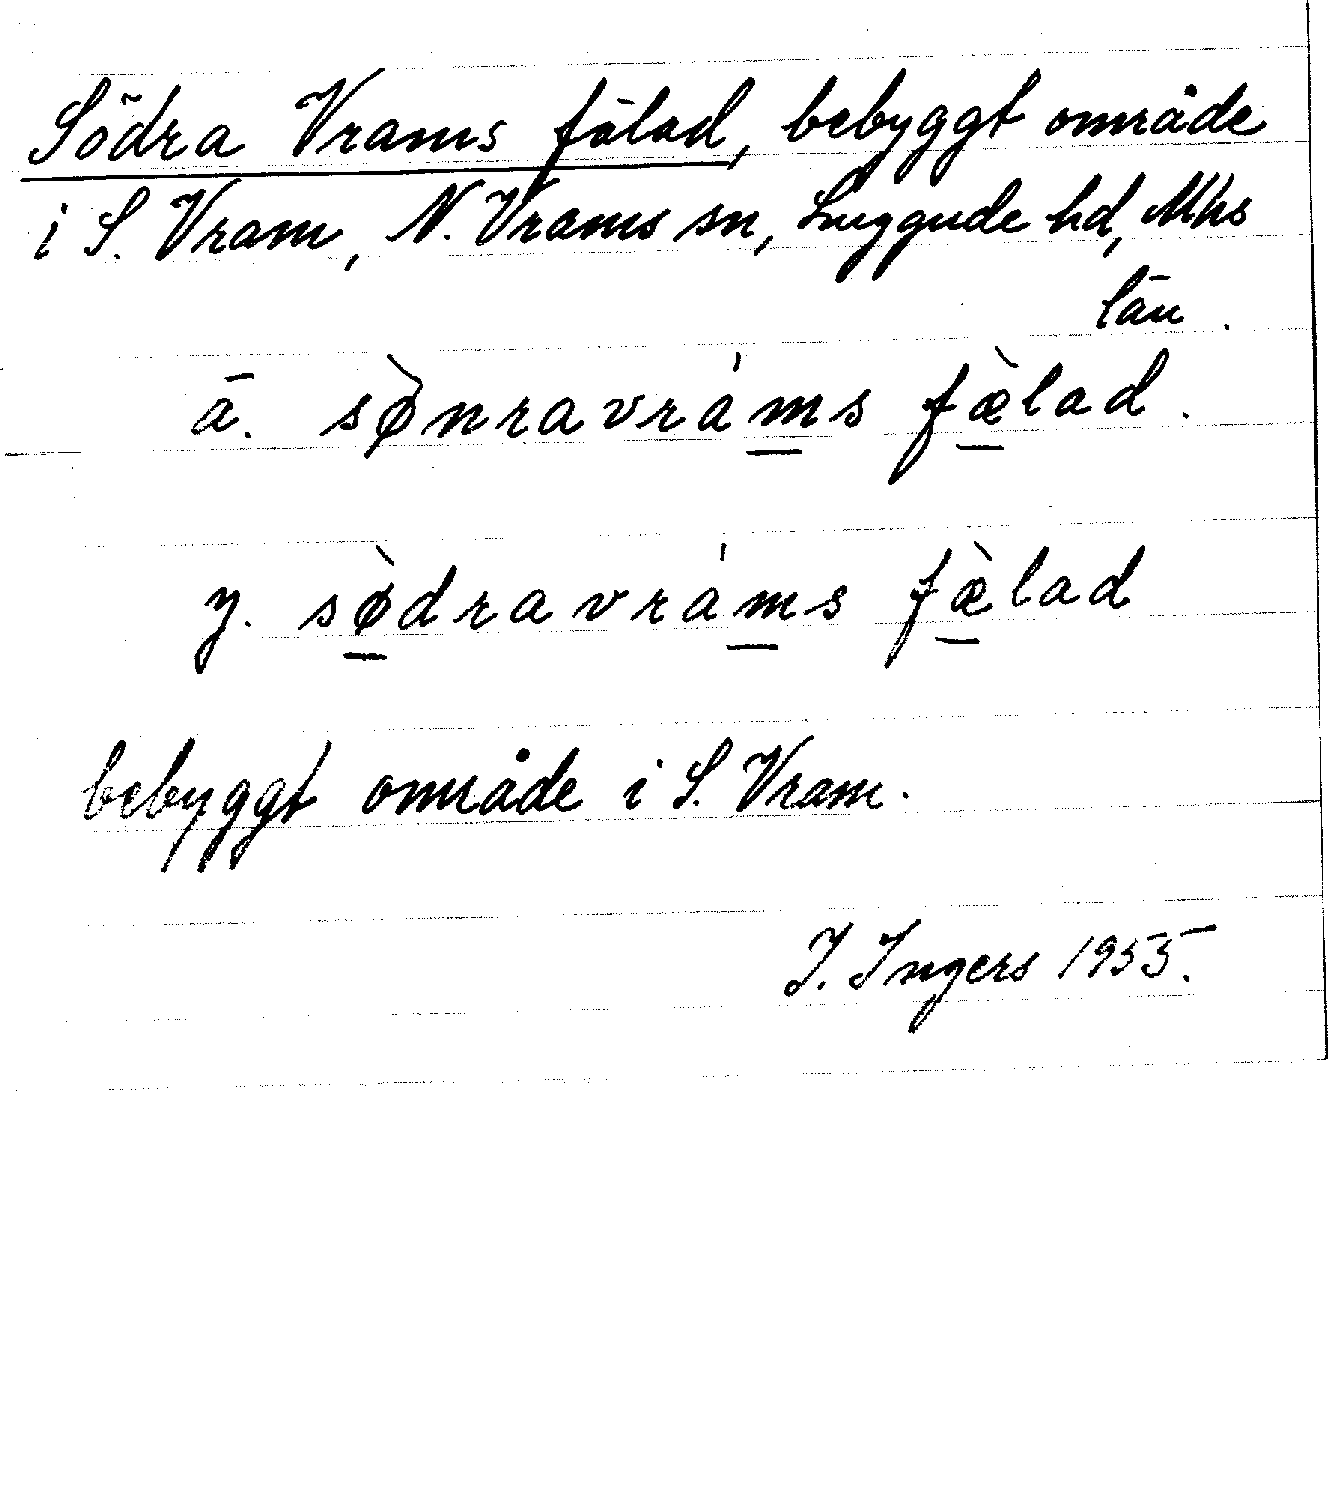 Södra Vrams fälad, bebyggt område
i S. Vram, N. Vrams sn, Luggude hd, Mhs
län.
ä. sø̀nravrám̲s fæ̲̀lad.
y. sø̲̀dravrám̲s fæ̲̀lad
bebyggt område i S. Vram.
I. Ingers 1955.